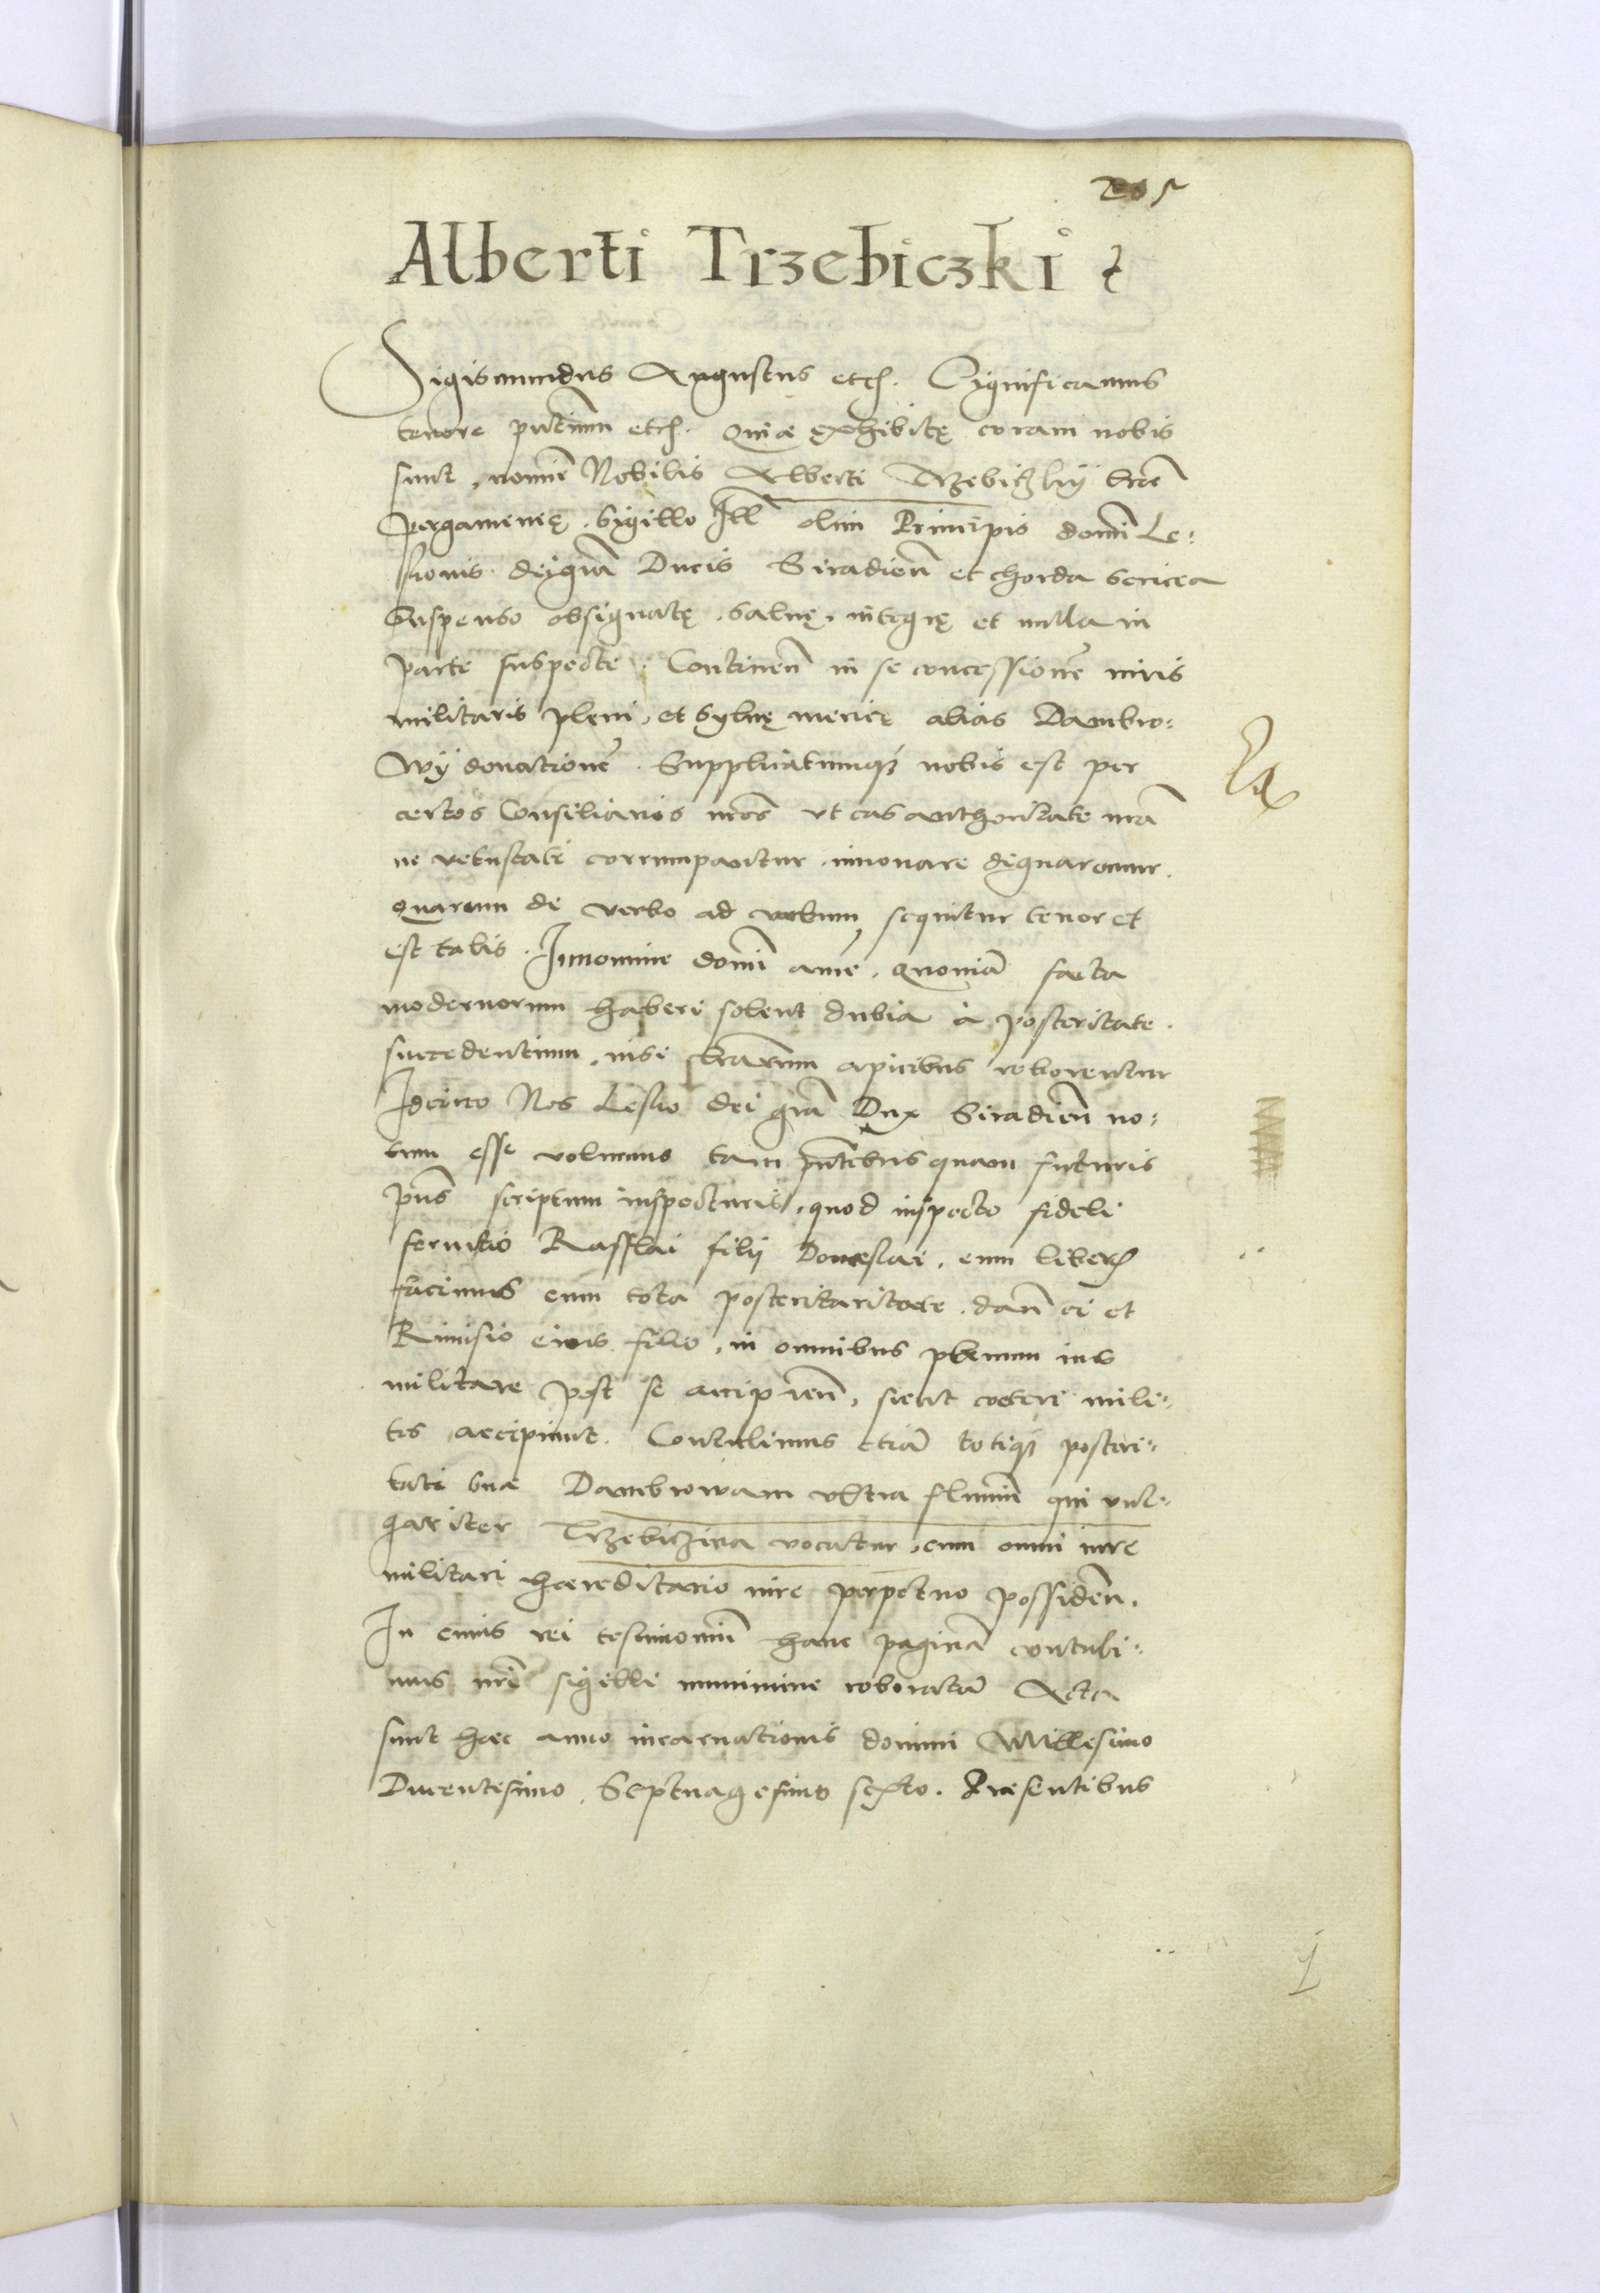 Alberti Trzebiczki
Sigismundus Augustus etc. Significamus
tenore pntium etc. Quia exhibitę coram nobis
sunt, nomine Nobilis Alberti Trzebiczky lrae
pergamenę, sigillo Ill olim Principis domi Le:
stionis dei gra Ducis Siradien et chorda sericea
suspenso obsignatę, saluę, integrę et nulla in
parte suspectę. Continen in se concessionem iuris
militaris pleni, et syluę mericę alias Dambro:
wy donationem. Supplicatumque nobis est per
certos Consiliarios nros vt eas authoritate nra
ne vetustate corrumpantur, innouare dignaremur.
quarum de verbo ad verbum sequitur tenor et
est talis. In nomine domi ame. Quoniam facta
modernorum haberi solent dubia à posteritate
succedentium, nisi lrarum apicibus roborentur
Idcirco Nos Lestio dei gra Dux Siradien no:
tum esse volumus tam pntibus quam futuris
pns scriptum inspecturis, quod inspecto fideli
seruitio Rasslai filij Domeslai, eum liberum
facimus cum tota posteritaritate, dan ei et
Rinisio eius filio, in omnibus plenum ius
militare post se accipien, sicut ceteri mili:
tes accipiunt. Contulimus etiam totique posteri:
tati suae Dambrowam vltra flumen qui vul:
gariter Trzebiczina vocatur, cum omni iure
militari haereditario iure perpetuo possiden.
In cuius rei testimonium hanc paginam contuli:
mus nri sigilli munimine roboratam Acta
sunt haec anno incarnationis domini Millesimo
Ducentesimo, Septuagesimo sexto. Praesentibus